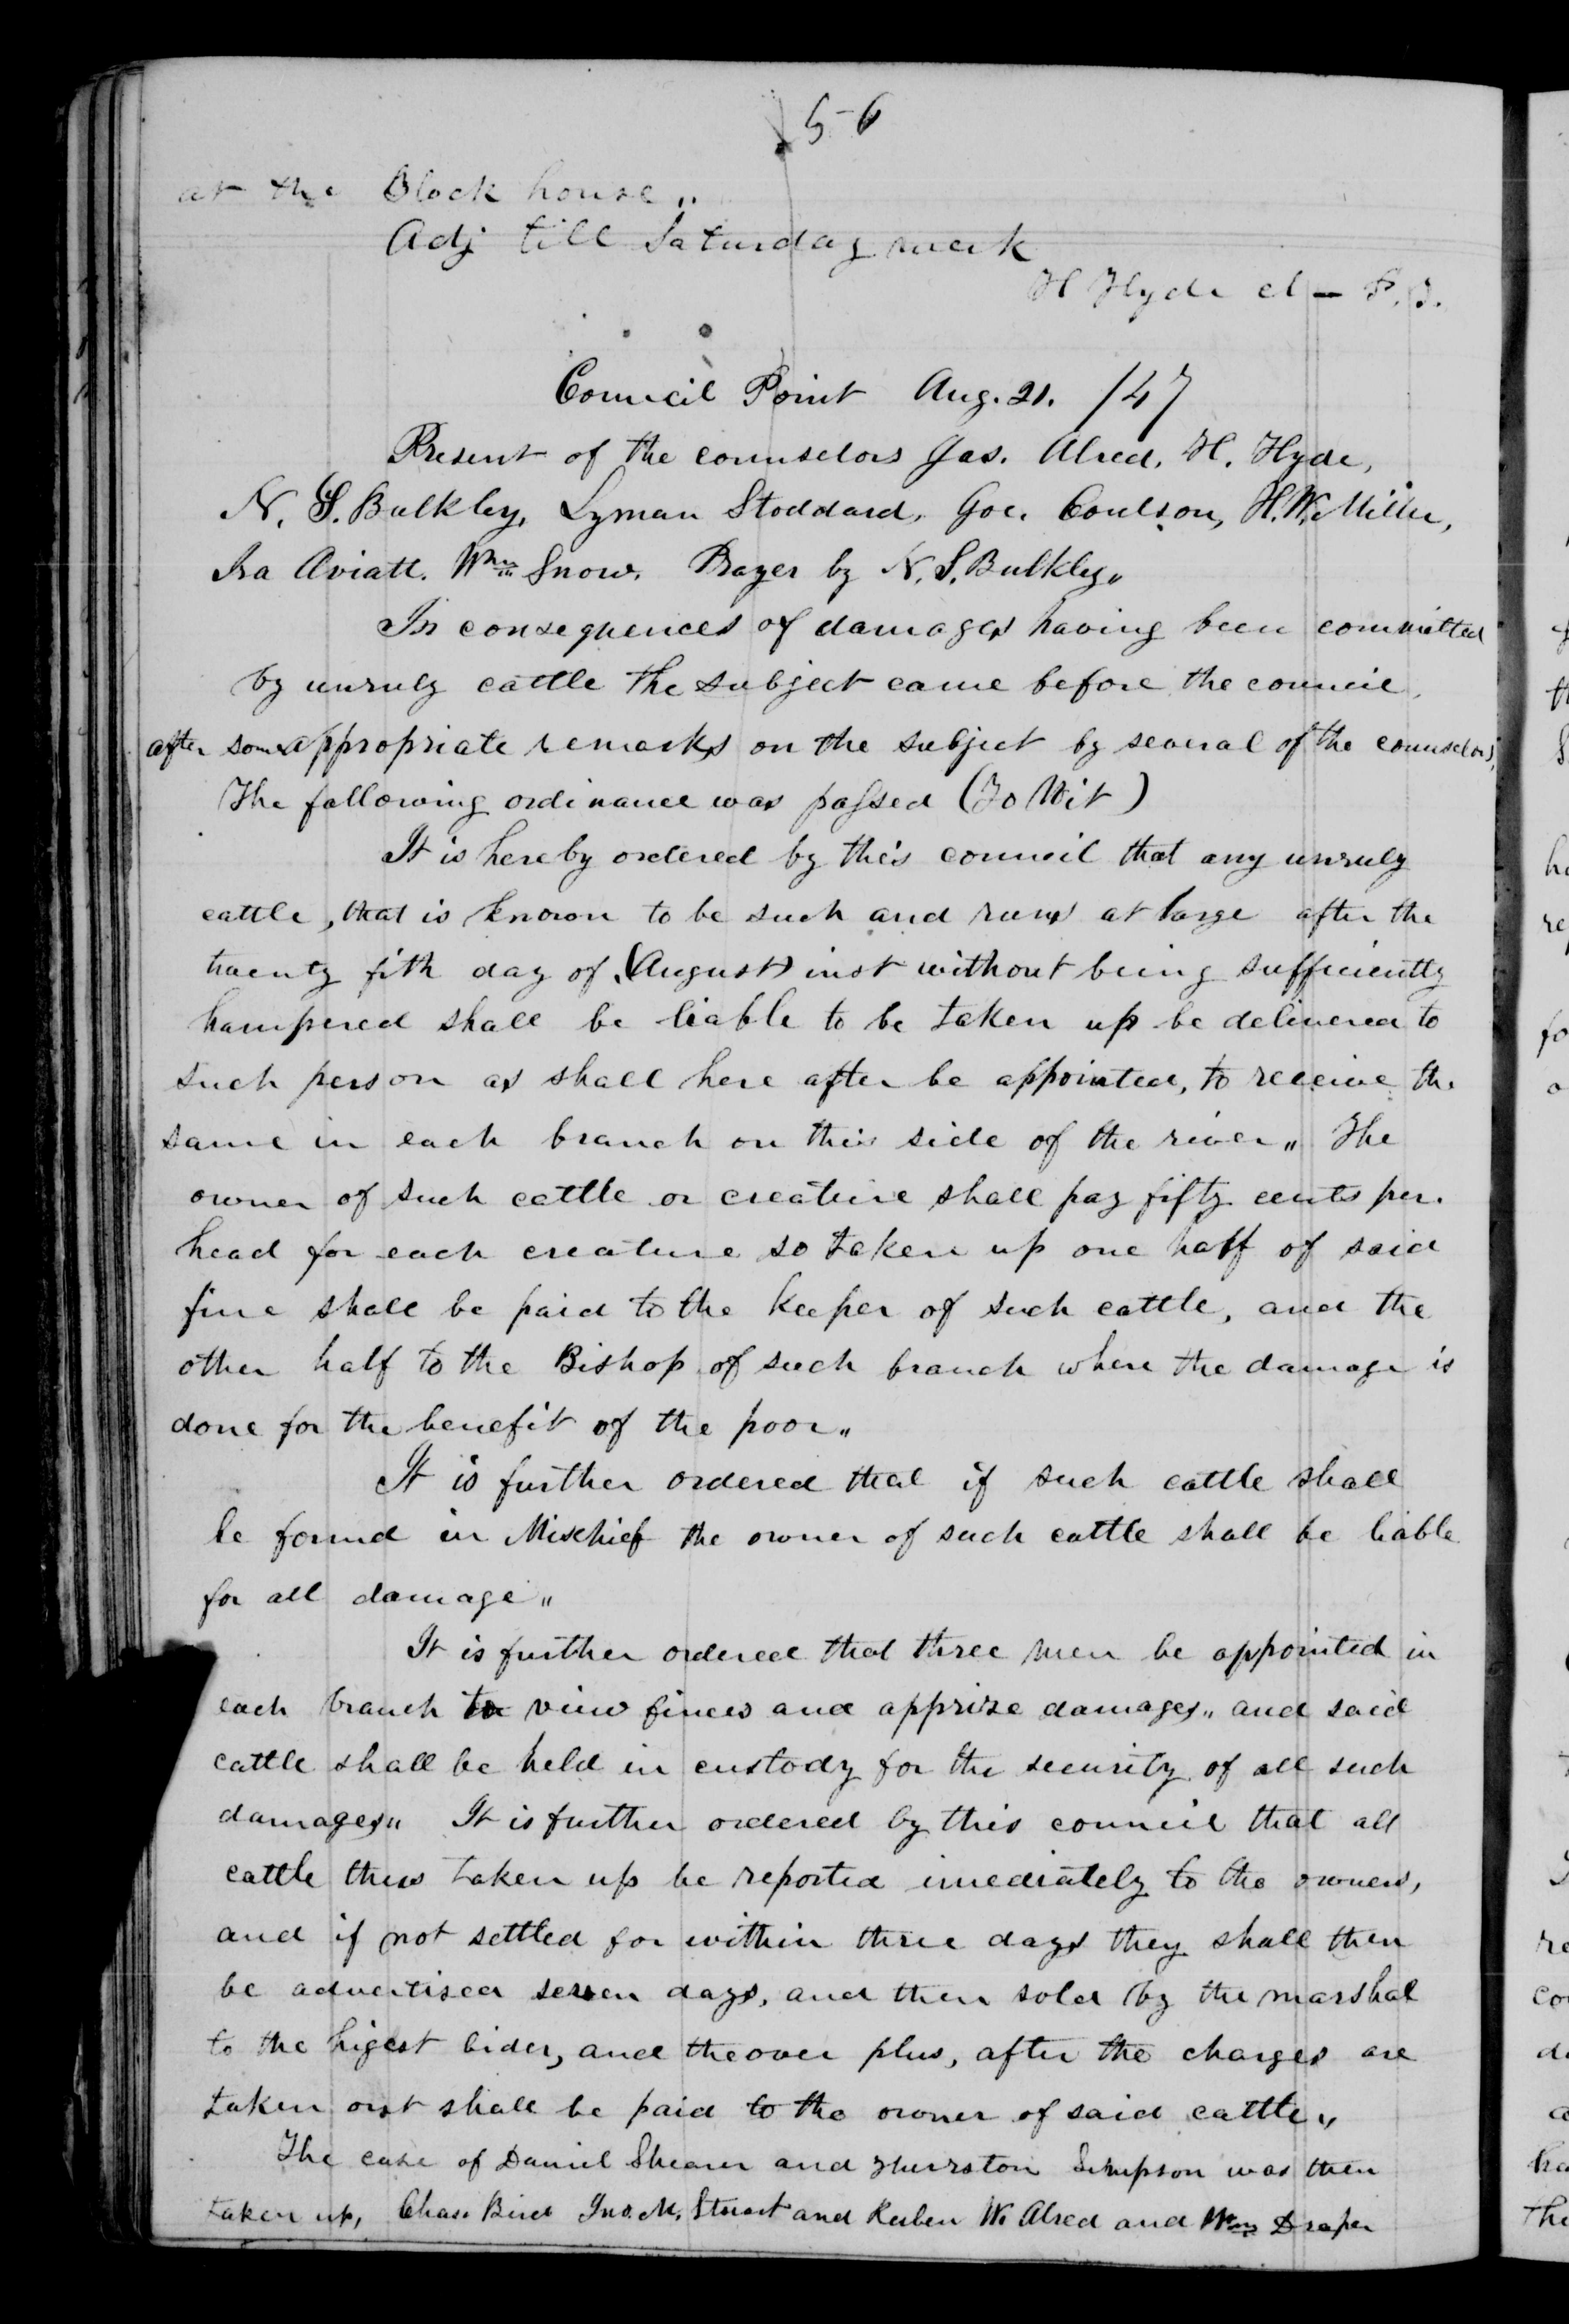 56
at the Block house„
Adj till Saturday week
H Hyde cl - P. T.
Council Point Aug. 21. /47
Present of the counselors Jas. Alred, H. Hyde,
N. S. Bulkley, Lyman Stoddard, Goe. Coulson, H. W. Miller,
Ira Aviatt. Wm Snow. Prayer by N. S. Bulkley„
In consequences of damages having been committed
by unruly cattle the subject came before the council,
after some appropriate remarks on the subject by several of the counselors,
The following ordinance was passed (To Wit)
It is hereby ordered by this council that any unruly
cattle, that is known to be such and runs at large after the
twenty fith day of (August) inst without being sufficiently
hampered shall be liable to be taken up be delivered to
such person as shall here after be appointed, to receive the
same in each branch on this side of the river„ The
owner of such cattle or creature shall pay fifty cents per.
head for each creature so taken up one half of said
fine shall be paid to the keeper of such cattle, and the
other half to the Bishop of such branch where the damage is
done for the benefit of the poor„
It is further ordered that if such cattle shall
be found in Mischief the owner of such cattle shall be liable
for all damage„
It is further ordered that three men be appointed in
each branch to view finces and apprise damages„ and said
cattle shall be held in custody for the security of all such
damages„ It is further ordered by this council that all
cattle thus taken up be reported imediately to the owners,
and if not settled for within three days they shall then
be advertised seven days, and then sold by the marshal
to the higest bider, and the over plus, after the charges are
taken out shall be paid to the owner of said cattle„
The case of Daniel Shearer and Thurston Simpson was then
taken up, Chas. Bird Jno. M. Stuart and Reuben W. Alred and Wm Draper